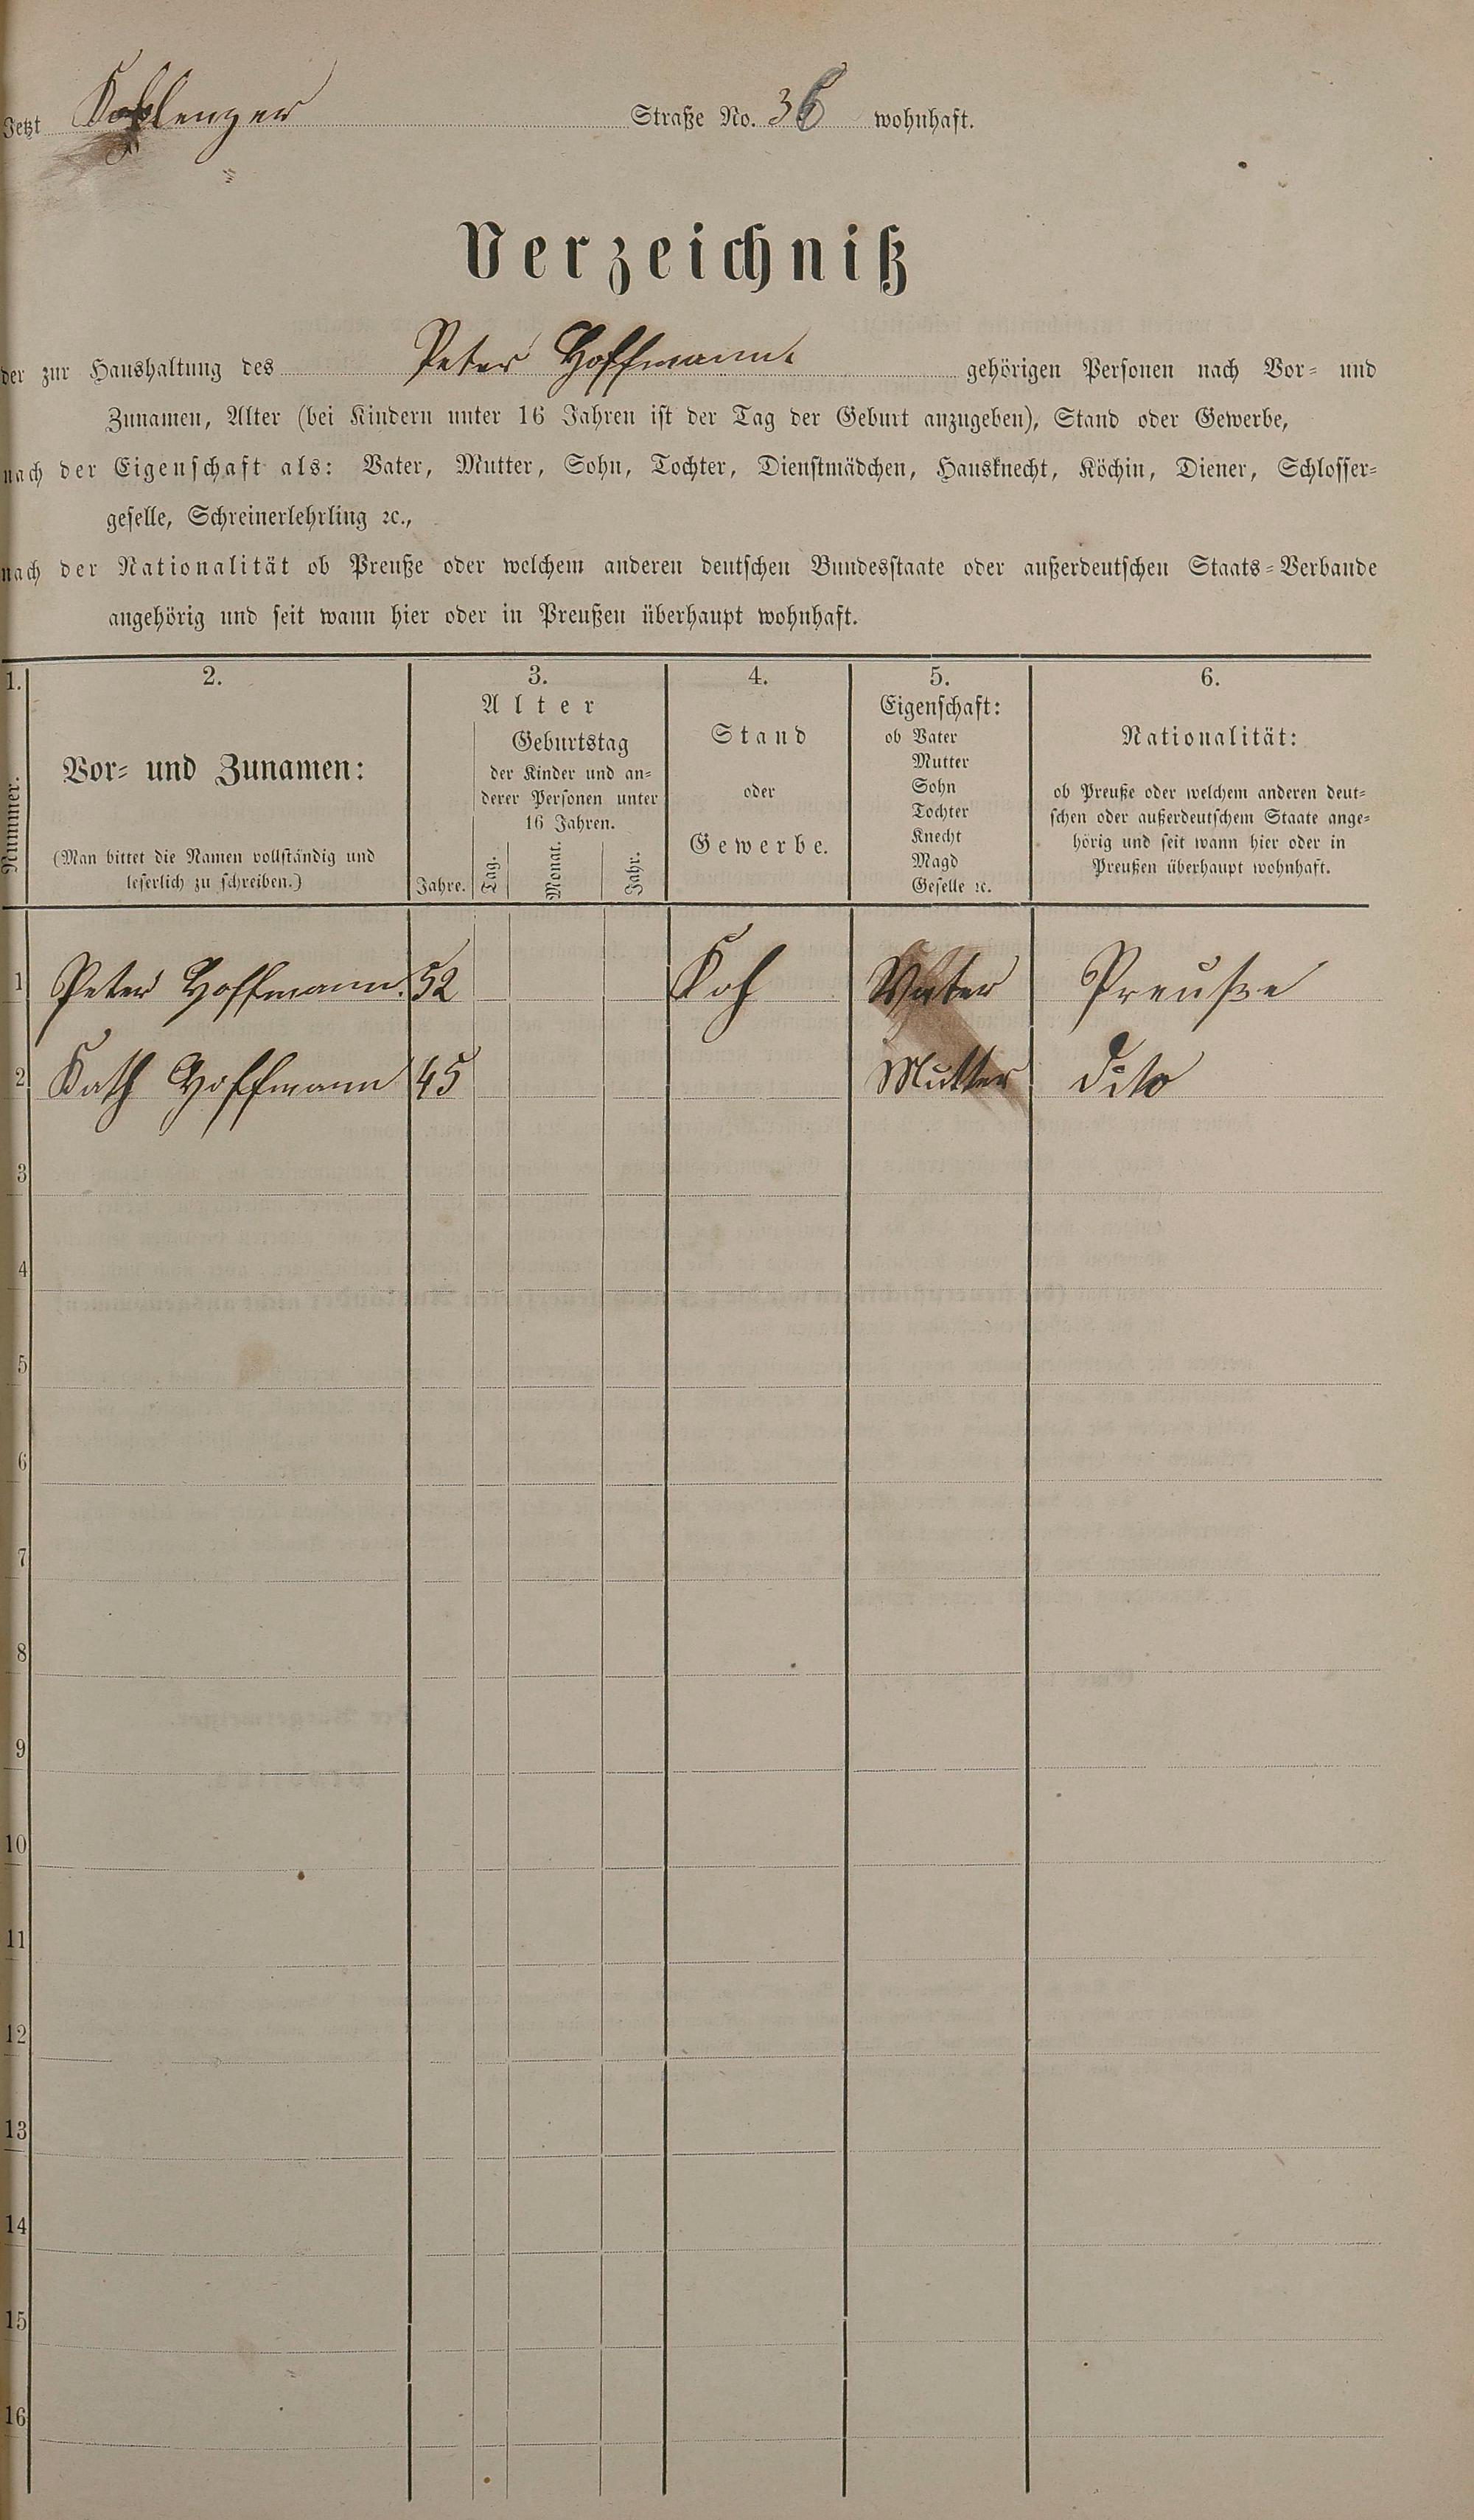 Jetzt Koblenzer Straße No. 36 wohnhaft.
Verzeichniß
der zur Haushaltung des Peter Hoffmann. gehörigen Personen nach Vor- und
Zunamen, Alter (bei Kindern unter 16 Jahren ist der Tag der Geburt anzugeben), Stand oder Gewerbe,
nach der Eigenschaft als: Vater, Mutter, Sohn, Tochter, Dienstmädchen, Hausknecht, Köchin, Diener, Schlosser-
geselle, Schreinerlehrling ꝛc.,
nach der Nationalität ob Preuße oder welchem anderen deutschen Bundesstaate oder außerdeutschen Staats-Verbande
angehörig und seit wann hier oder in Preußen überhaupt wohnhaft.
1. 2. 3. 4. 5. 6.
Nummer.
Vor- und Zunamen:
(Man bittet die Namen vollständig und
leserlich zu schreiben.)
Alter
Jahre.
Geburtstag
der Kinder und an-
derer Personen unter
16 Jahren.
Tag. Monat. Jahr.
Stand
oder
Gewerbe.
Eigenschaft:
ob Vater
Mutter
Sohn
Tochter
Knecht
Magd
Geselle ꝛc.
Nationalität:
ob Preuße oder welchem anderen deut-
schen oder außerdeutschem Staate ange-
hörig und seit wann hier oder in
Preußen überhaupt wohnhaft.
1 Peter Hoffmann. 52 Koh Vater Preuße
2 Kath Hoffmann 45 Mutter dito
3
4
5
6
7
8
9
10
11
12
13
14
15
16